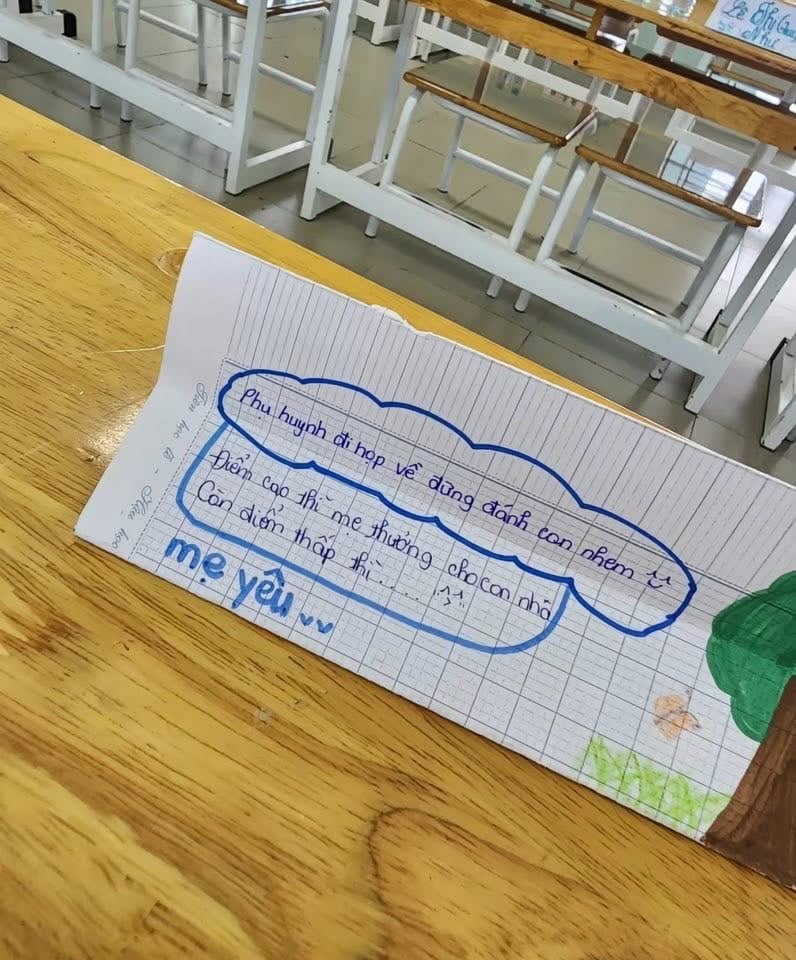 Phụ huynh đi họp về đừng đánh con nhem
Điểm cao thì mẹ thưởng cho con nhá
Còn điểm thấp thì.....
mẹ yêu
Tiên học lễ - Hậu học
Lê Thị
Như